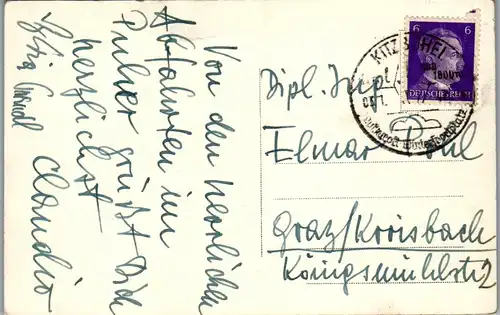 Von den herrlichen
Abfahrten im
Pulver grüßt Dich
herzlichst
Claudio
Jörg
Dipl. Ing.
Elmar
Graz/Kroisbach
Königsmühlstr 2
KITZBÜHEL
1800m
6 6
DEUTSCHES REICH